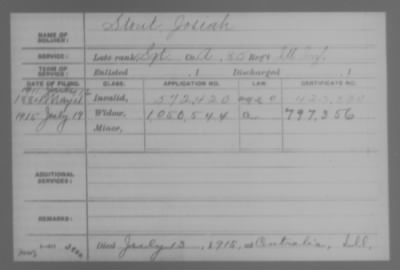 Stout, Josiah
NAME OF SOLDIER:
SERVICE: Late rank Sgt. Co. A, 80 Reg't Ill. Inf.
TERM OF SERVICE: Enlisted , 1 Discharged , 1
DATE OF FILING. CLASS. APPLICATION NO. LAW. CERTIFICATE NO.
Invalid, 572,420
1915 July 19 Widow, 1050,544 a 797,356
Minor,
ADDITIONAL SERVICES:
REMARKS:
Died July 12, 1915, at Centralia, Ill.